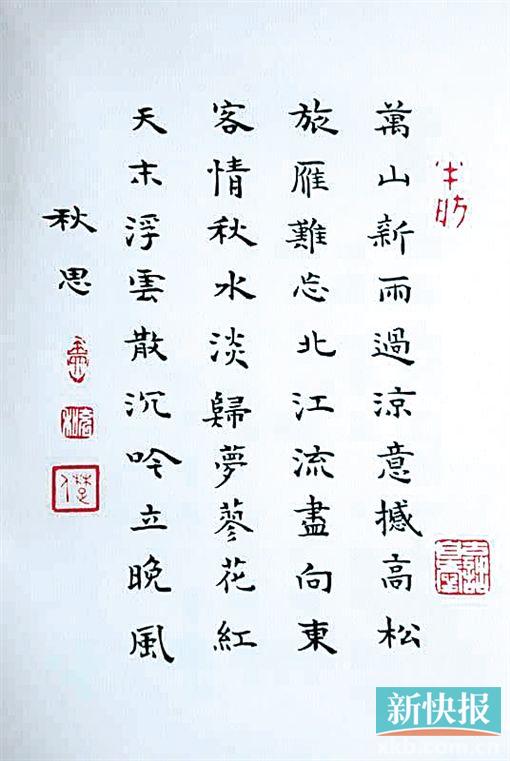 萬山新雨過涼意撼高松
旅雁難忘北江流盡向東
客情秋水淡歸夢蓼花紅
天末浮雲散沉吟立晚風
秋思
新快报
xkb.com.cn